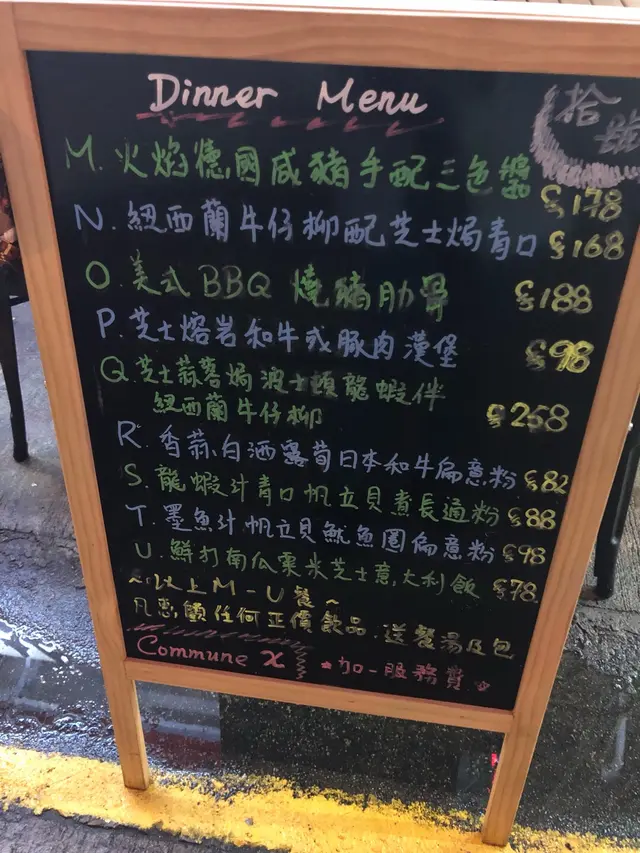 Dinner Menu
拾號
M. 火焰德國咸豬手配三色腸 $178
N. 紐西蘭牛仔柳配芝士焗青口 $168
O. 美式BBQ燒豬肋骨 $188
P. 芝士熔岩和牛或豚肉漢堡 $98
Q. 芝士蒜蓉焗波士頓龍蝦伴
紐西蘭牛仔柳 $258
R. 香蒜白酒露荀日本和牛扁意粉 $82
S. 龍蝦汁青口帆立貝煮長通粉 $88
T. 墨魚汁帆立貝魷魚圈扁意粉 $98
U. 鮮打南瓜粟米芝士意大利飯 $78
~以上M-U餐~
凡惠顧任何正價飲品.送餐湯及包
Commune X *加一服務費*